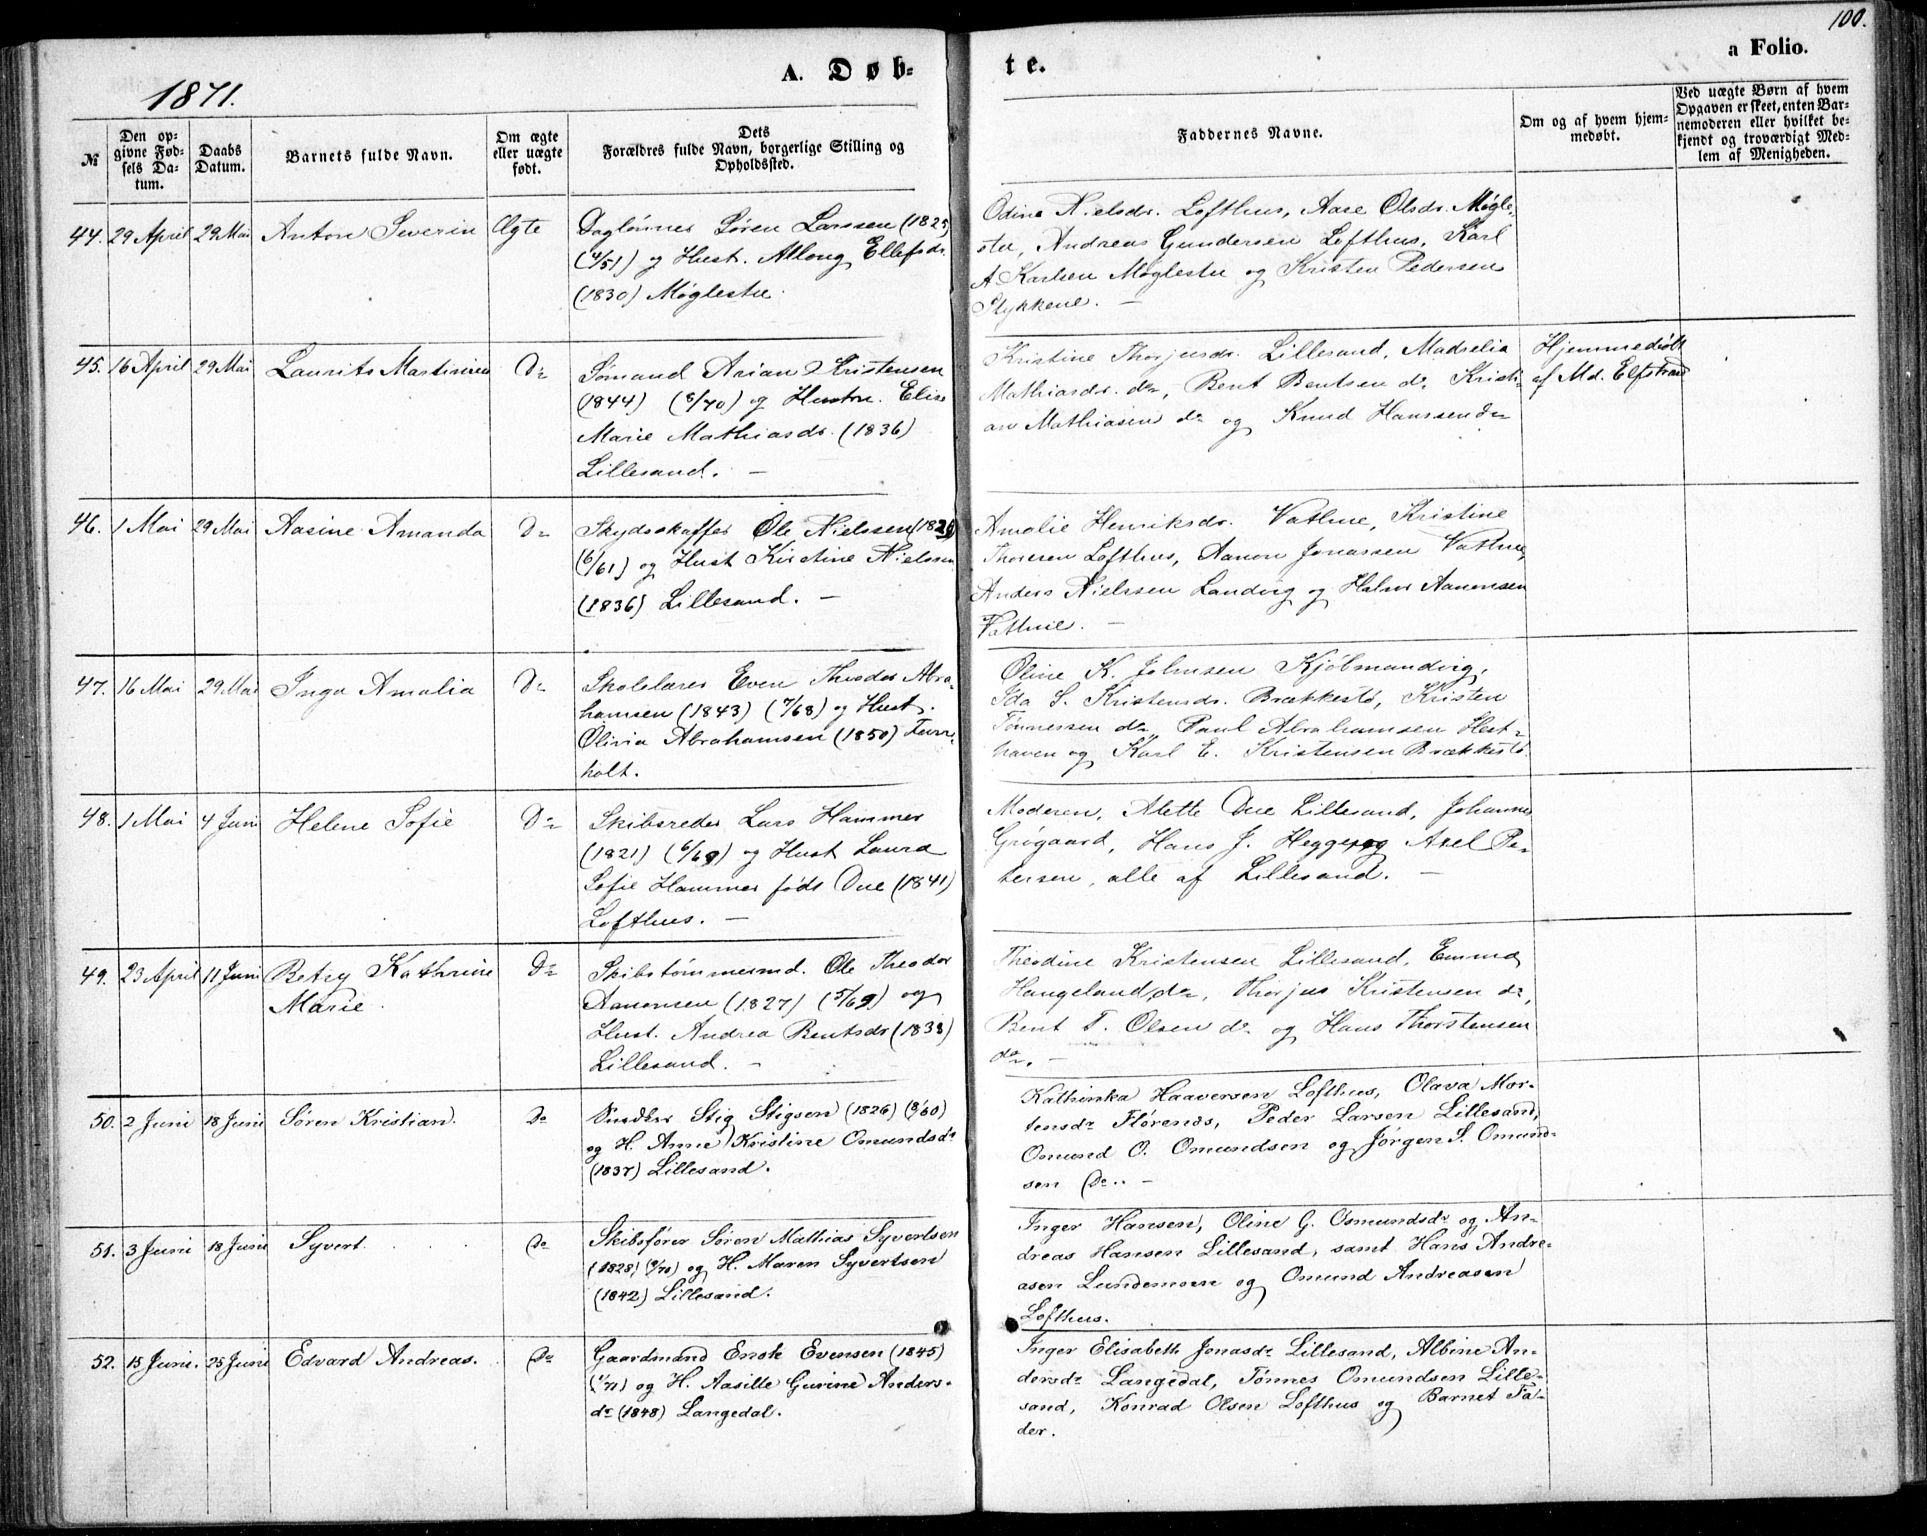 100.
1871.
A. Døb-
te.
a Folio.
№
Den op-
givne Fød-
sels Da-
tum.
Daabs
Datum.
Barnets fulde Navn.
Om ægte
eller uægte
født.
Dets
Forældres fulde Navn, borgerlige Stilling og
Opholdssted.
Faddernes Navne.
Om og af hvem hjem-
medøbt.
Ved uægte Børn af hvem
Opgaven er skeet, enten Bar-
nemoderen eller hvilket be-
kjendt og troværdigt Med-
lem af Menigheden.
44. 29 April 29 Mai Anton Severin Ægte
Daglønner Søren Larssen (1825)
(4/51) og Hust. Allong Ellefsdr.
(1830) Møglestu.
Odine Nielsdr. Lofthus, Aase Olsdr. Møgle-
stu, Andreas Gundersen Lofthus, Karl
A Karlsen Møglestu og Kristen Pedersen
Stykkene. —
45. 16 April 29 Mai Laurits Martinius Do
Sømand Arian Kristensen
(1844) (8/70) og Hustru. Elise
Marie Mathiasdr. (1836)
Lillesand. —
Kristine Thorjusdr. Lillesand, Madselia
Mathiasdr. do, Bent Bentsen do Kristi-
an Mathiasen do og Knud Hanssen do
Hjemmedøbt
af Md. Elfstrand
46. 1 Mai 29 Mai Aasine Amanda Do
Skydsskaffer Ole Nielssen (1829)
(6/61) og Hust Kirstine Nielssen
(1836) Lillesand. —
Amalie Henriksdr. Vatnne, Kristine
Thoresen Lofthus, Aanon Jonassen Vatnne,
Anders Nielssen Landvig og Halvor Aanonsen
Vatnne. —
47. 16 Mai 29 Mai Inga Amalia Do
Skolelærer Even Theodor Abra-
hamsen (1843) (7/68) og Hust.
Olivia Abrahamsen (1850) Tvin-
holt.
Oline K. Johnsen Kjøbmandvig,
Ida S. Kristensdr. Brækkestø, Kristen
Tønnessen do, Paul Abrahamsen Hest-
haven og Karl E. Kristensen Brækkestø
48. 1 Mai 4 Juni Helene Sofie Do
Skibsreder Lars Hammer
(1821) (6/69) og Hust Laura
Sofie Hammer født Due (1841)
Lofthus. —
Moderen, Alette Due Lillesand, Johanne
Grøgaard, Hans J. Hegge og Axel Pe-
tersen, alle af Lillesand. —
49. 23 April 11 Juni Betzy Kathrine Do
Marie.
Skibstømmermd. Ole Theodor
Aanonsen (1827) (5/69) og
Hust. Andrea Bentsdr (1838)
Lillesand. —
Theodine Kristensen Lillesand, Emma
Haugeland do, Thorjus Kristensen do,
Bent T. Olsen do og Hans Thorstensen
do. —
50. 2 Juni 18 Juni Søren Kristian. Do
Snedker Stig Stigsen (1826) (9/60)
og H. Anne Kristine Omundsdr
(1837) Lillesand.
Kathinka Haaversen Lofthus, Olava Mor-
tensdr Florenæs, Peder Larsen Lillesand,
Omund O. Omundsen og Jørgen S. Omund-
sen Do. —
51. 3 Juni 18 Juni Syvert. Do
Skibsfører Søren Mathias Syvertsen
(1828) (9/70) og H. Maren Syvertsen
(1842) Lillesand.
Inger Hansen, Oline G. Osmundsdr og An-
dreas Hansen Lillesand, samt Hans Andre-
asen Lundemoen og Omund Andreasen
Lofthus.
52. 15 Juni. 25 Juni Edvard Andreas. Do
Gaardmand Enok Evensen (1845)
(1/71) og H. Aasille Gurine Anders-
dr (1848) Langedal.
Inger Elisabeth Jonasdr Lillesand, Albine An-
dersdr Langedal, Tønnes Omundsen Lille-
sand, Konrad Olsen Lofthus og Barnet Fa-
der.